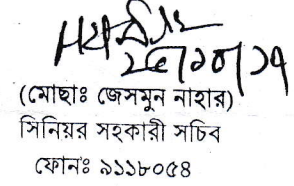 ২৫/১০/১৭
(মোছাঃ জেসমুন নাহার)
সিনিয়র সহকারী সচিব
ফোনঃ ৯১১৮০৫৪